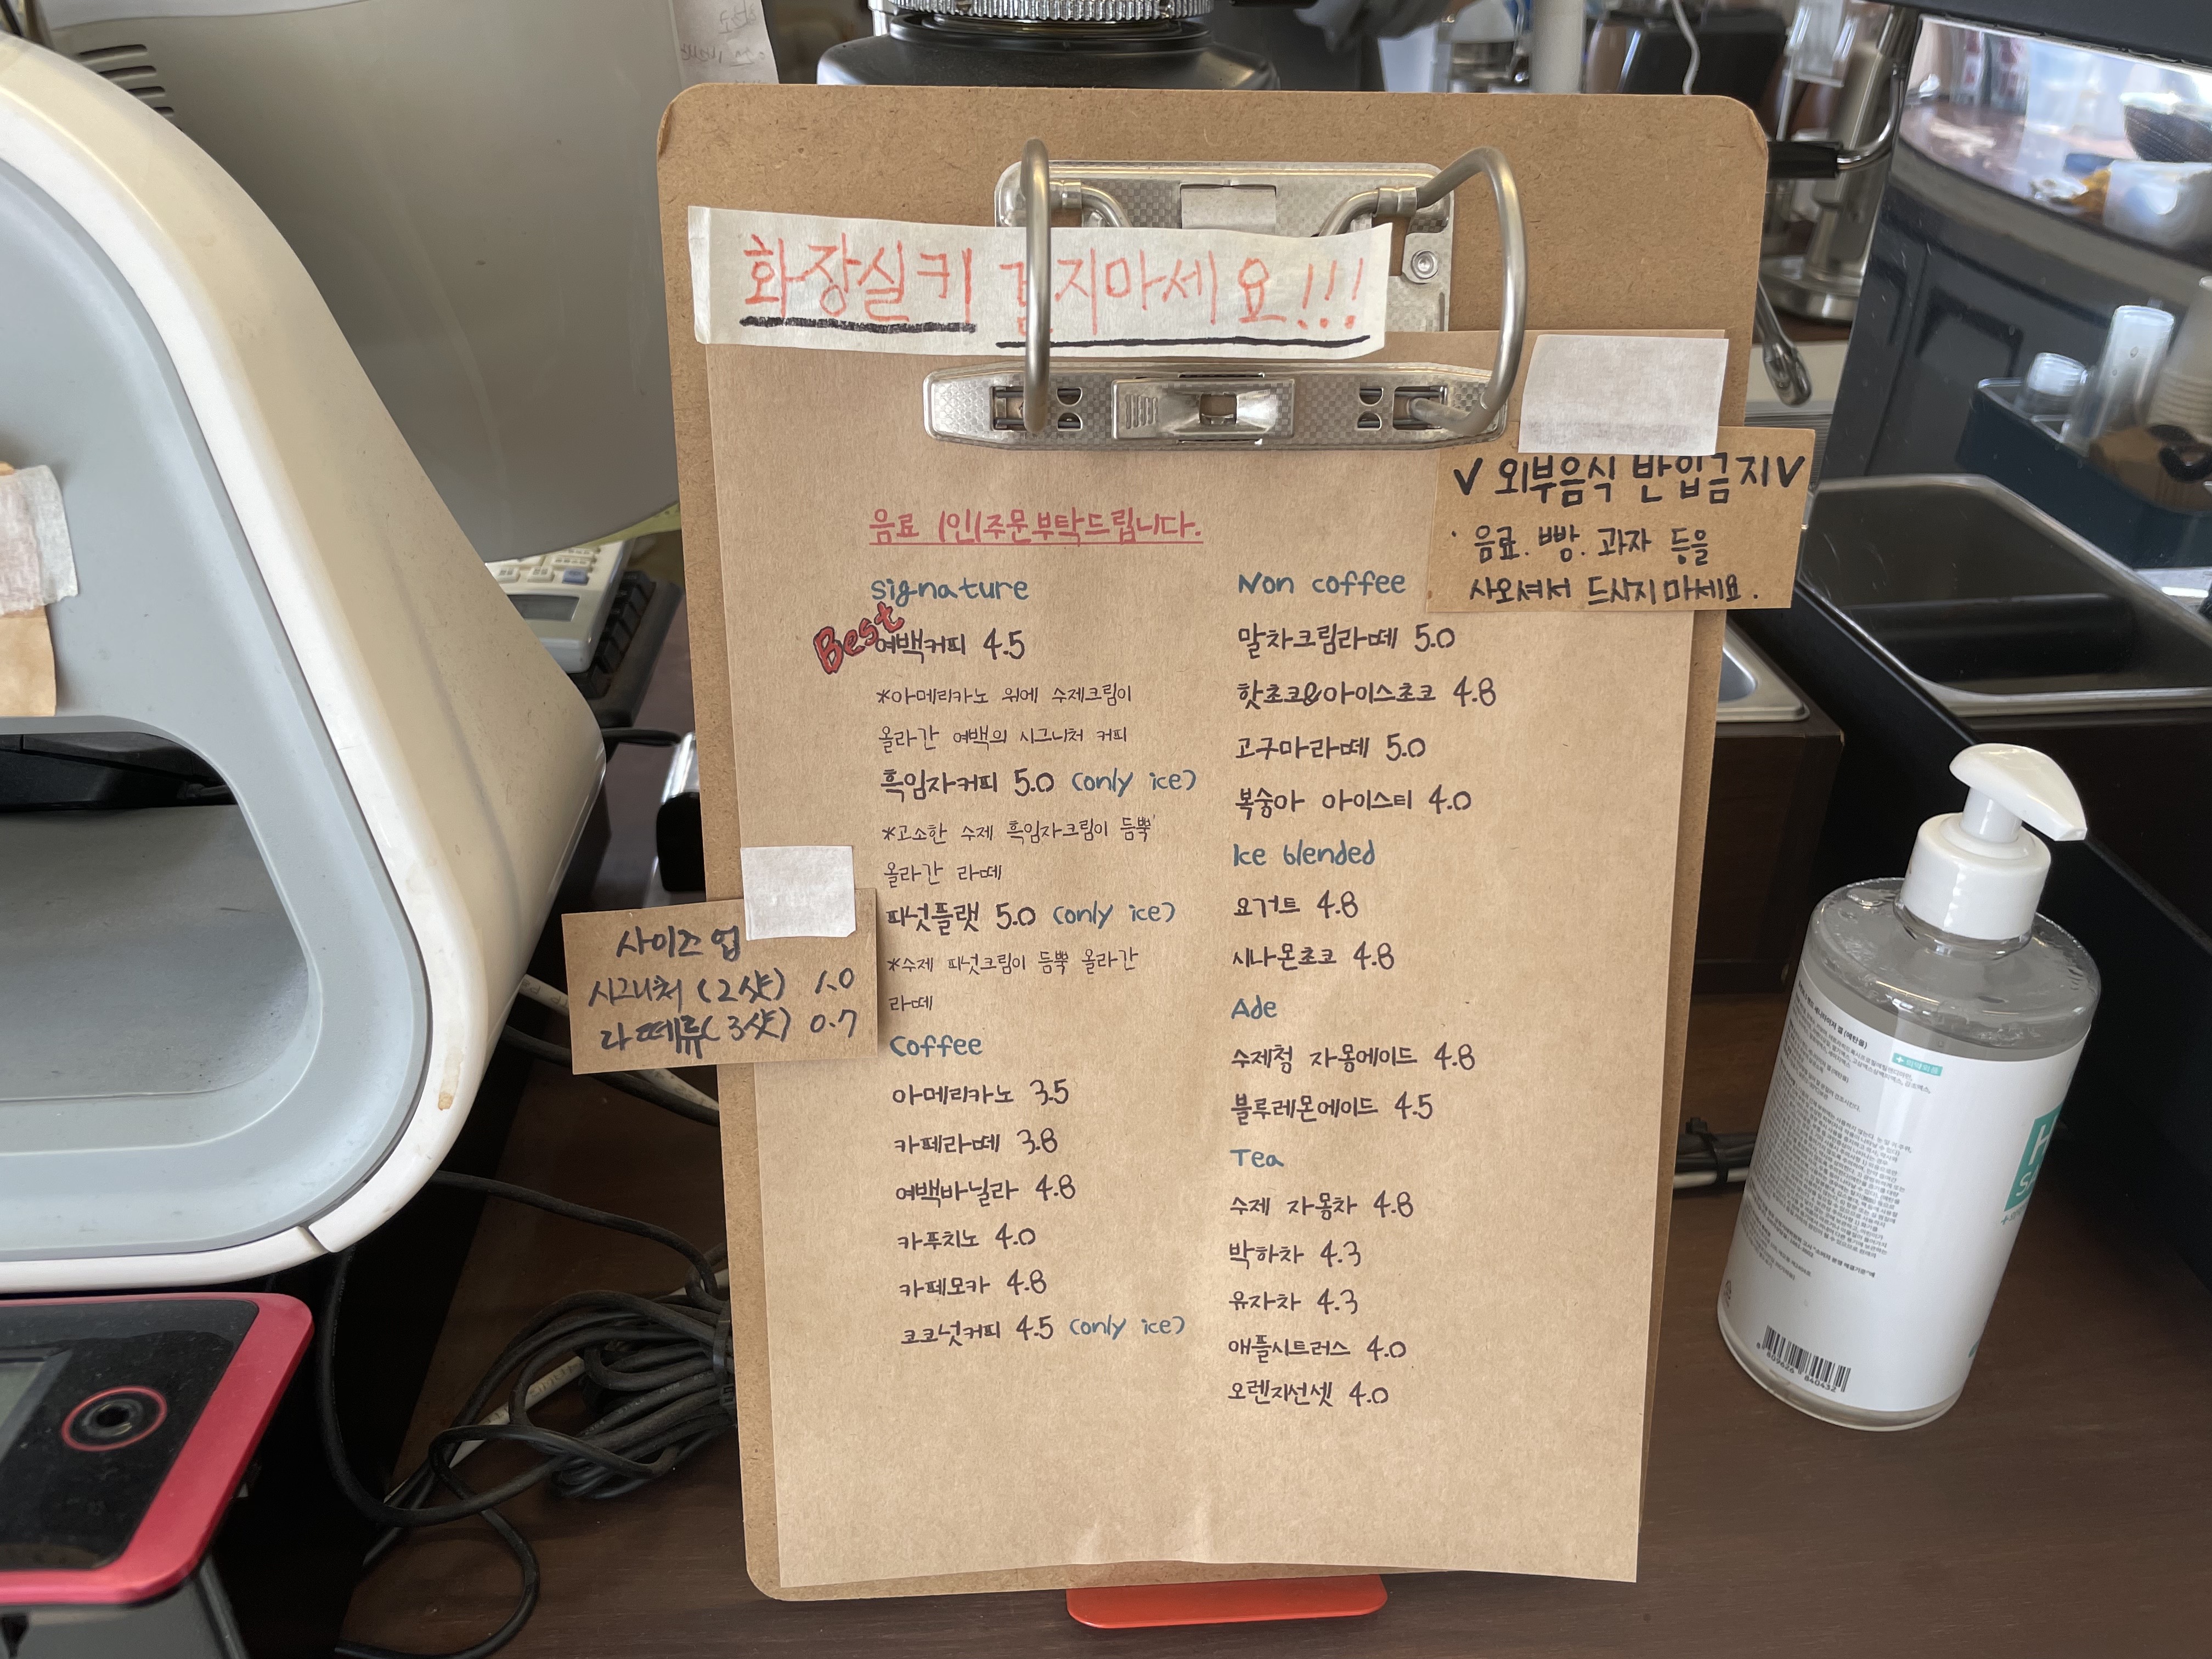 화장실키 지마세요!!!
V 외부음식 반입금지 V
· 음료. 빵. 과자 등을
사오셔서 드시지마세요.
음료 1인1주문부탁드립니다.
signature
Best
여백커피 4.5
*아메리카노 위에 수제크림이
올라간 여백의 시그니처 커피
흑임자커피 5.0 (only ice)
*고소한 수제 흑임자크림이 듬뿍
올라간 라떼
피넛플랫 5.0 (only ice)
*수제 피넛크림이 듬뿍 올라간
라떼
사이즈업
시그니처 (2샷) 1.0
라떼류(3샷) 0.7
Coffee
아메리카노 3.5
카페라떼 3.8
여백바닐라 4.8
카푸치노 4.0
카페모카 4.8
코코넛커피 4.5 (only ice)
Non coffee
말차크림라떼 5.0
핫초코&아이스초코 4.8
고구마라떼 5.0
복숭아 아이스티 4.0
Ice blended
요거트 4.8
시나몬초코 4.8
Ade
수제청 자몽에이드 4.8
블루레몬에이드 4.5
Tea
수제 자몽차 4.8
박하차 4.3
유자차 4.3
애플시트러스 4.0
오렌지선셋 4.0
8 809626 840432